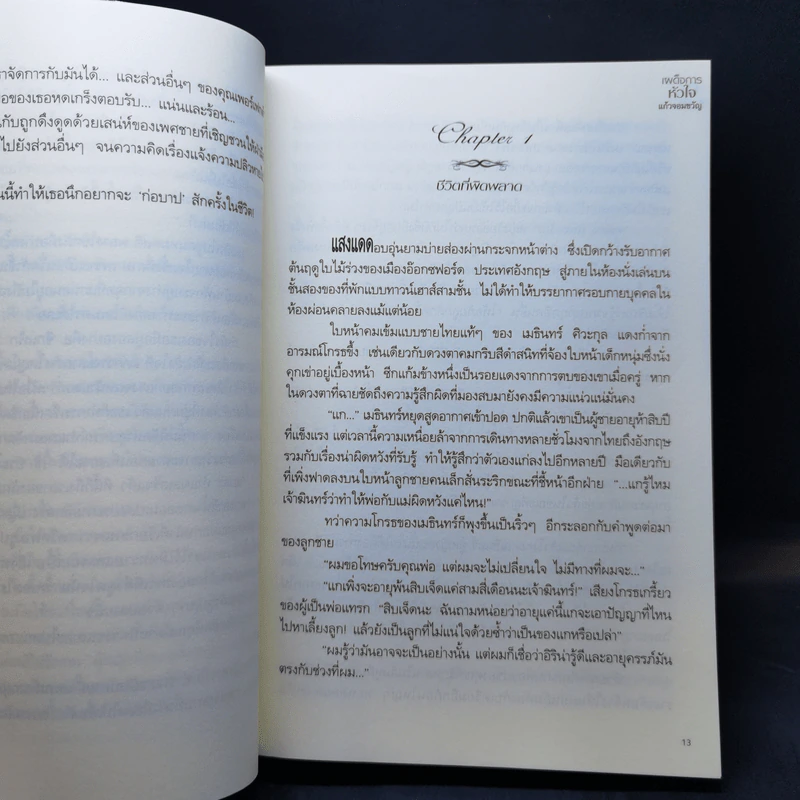 าจัดการกับมันได้... และส่วนอื่นๆ ของคุณเพอร์เฟ
อของเธอหดเกร็งตอบรับ... แน่นและร้อน...
กับถูกดึงดูดด้วยเสน่ห์ของเพศชายที่เชิญชวนให้
ไปยังส่วนอื่นๆ จนความคิดเรื่องแจ้งความปลิวหาย
นนี้ทำให้เธอนึกอยากจะ 'ก่อบาป' สักครั้งในชีวิต!
เผด็จการ
หัวใจ
แก้วจอมขวัญ
Chapter 1
ชีวิตที่ผิดพลาด
แสงแดดอบอุ่นยามบ่ายส่องผ่านกระจกหน้าต่าง ซึ่งเปิดกว้างรับอากาศ
ต้นฤดูใบไม้ร่วงของเมืองอ๊อกซฟอร์ด ประเทศอังกฤษ สู่ภายในห้องนั่งเล่นบน
ชั้นสองของที่พักแบบทาวน์เฮาส์สามชั้น ไม่ได้ทำให้บรรยากาศรอบกายบุคคลใน
ห้องผ่อนคลายลงแม้แต่น้อย
ใบหน้าคมเข้มแบบชายไทยแท้ๆ ของ เมธินทร์ ศิวะกุล แดงก่ำจาก
อารมณ์โกรธขึ้ง เช่นเดียวกับดวงตาคมกริบสีดำสนิทที่จ้องใบหน้าเด็กหนุ่มซึ่งนั่ง
คุกเข่าอยู่เบื้องหน้า ซีกแก้มข้างหนึ่งเป็นรอยแดงจากการตบของเขาเมื่อครู่ หาก
ในดวงตาที่ฉายชัดถึงความรู้สึกผิดที่มองสบมายังคงมีความแน่วแน่มั่นคง
"แก..." เมธินทร์หยุดสูดอากาศเข้าปอด ปกติแล้วเขาเป็นผู้ชายอายุห้าสิบปี
ที่แข็งแรง แต่เวลานี้ความเหนื่อยล้าจากการเดินทางหลายชั่วโมงจากไทยถึงอังกฤษ
รวมกับเรื่องน่าผิดหวังที่รับรู้ ทำให้รู้สึกว่าตัวเองแก่ลงไปอีกหลายปี มือเดียวกับ
ที่เพิ่งฟาดลงบนใบหน้าลูกชายคนเล็กสั่นระริกขณะที่ชี้หน้าอีกฝ่าย "...แกรู้ไหม
เจ้าฆินทร์ว่าทำให้พ่อกับแม่ผิดหวังแค่ไหน!"
ทว่าความโกรธของเมธินทร์ก็พุงขึ้นเป็นริ้วๆ อีกระลอกกับคำพูดต่อมา
ของลูกชาย
"ผมขอโทษครับคุณพ่อ แต่ผมจะไม่เปลี่ยนใจ ไม่มีทางที่ผมจะ..."
"แกเพิ่งจะอายุพ้นสิบเจ็ดแค่สามสี่เดือนนะเจ้าฆินทร์!" เสียงโกรธเกรี้ยว
ของผู้เป็นพ่อแทรก "สิบเจ็ดนะ ฉันถามหน่อยว่าอายุแค่นี้แกจะเอาปัญญาที่ไหน
ไปหาเลี้ยงลูก! แล้วยังเป็นลูกที่ไม่แน่ใจด้วยซ้ำว่าเป็นของแกหรือเปล่า"
"ผมรู้ว่ามันอาจจะเป็นอย่างนั้น แต่ผมก็เชื่อว่าอิริน่ารู้ดีและอายุครรภ์มัน
ตรงกับช่วงที่ผม..."
13